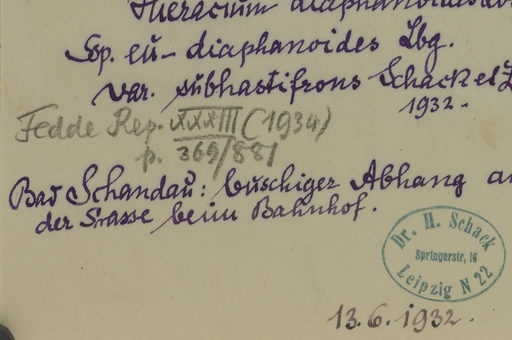 Hieracium diaphanoides Lbg.
Ssp. eu-diaphanoides Lbg.
var. subhastifrons Schack et Z
1932.
Fedde Rep. XXXIII (1934)
p. 369/881
Bad Schandau: buschiger Abhang an
der Strasse beim Bahnhof.
Dr. H. Schack
Springerstr, 16
Leipzig N 22
13.6.1932.